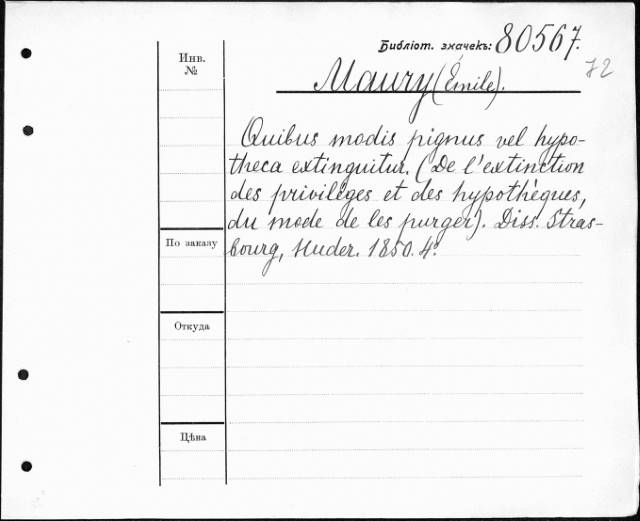 Библіот. значекъ: 80567.
72
Инв.
№
Maury (Émile).
Quibus modis pignus vel hypo-
theca extinguitur. (De l'extinction
des privilèges et des hypothèques,
du mode de les purger). Diss. Stras-
bourg, Huder. 1850. 4°.
По заказу
Откуда
Цѣна